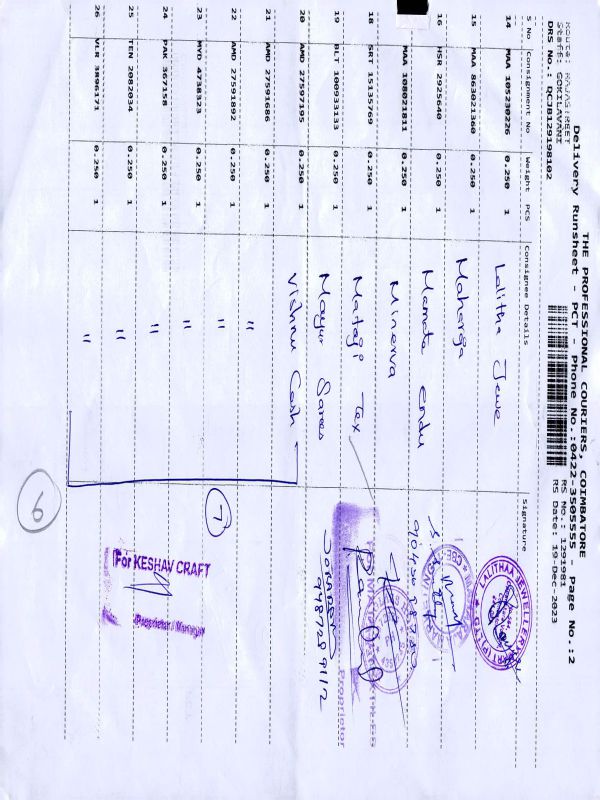 THE PROFESSIONAL COURIERS, COIMBATORE
Delivery Runsheet - PCT - Phone No.:0422-3505555 - Page No.:2
DRS No.: DCJB129198102 RS No.: 1291981
Staff: GOKILAVANI RS Date: 19-Dec-2023
S No Consignment No Weight PCS Consignee Details Signature
14 MAA 105230226 0.250 1 Lalitha Jewe
15 MAA 863021360 0.250 1 Maharga
16 HSR 2925640 0.250 1 Mamata endu
17 MAA 108021811 0.250 1 Minerva
18 SRT 15135769 0.250 1 Matagi Tex
19 BLT 100933133 0.250 1 Mayur Sarees
20 AMD 27597195 0.250 1 Vishnu Cash
21 AMD 27591686 0.250 1 "
22 AMD 27591892 0.250 1 "
23 MYD 4738323 0.250 1 "
24 PAK 367158 0.250 1 "
25 TEN 2082034 0.250 1 "
26 VLR 3896171 0.250 1 "
LALITHAA JEWELLERY
Proprietor
9487289112
7
For KESHAV CRAFT
Proprietor / Manager
6